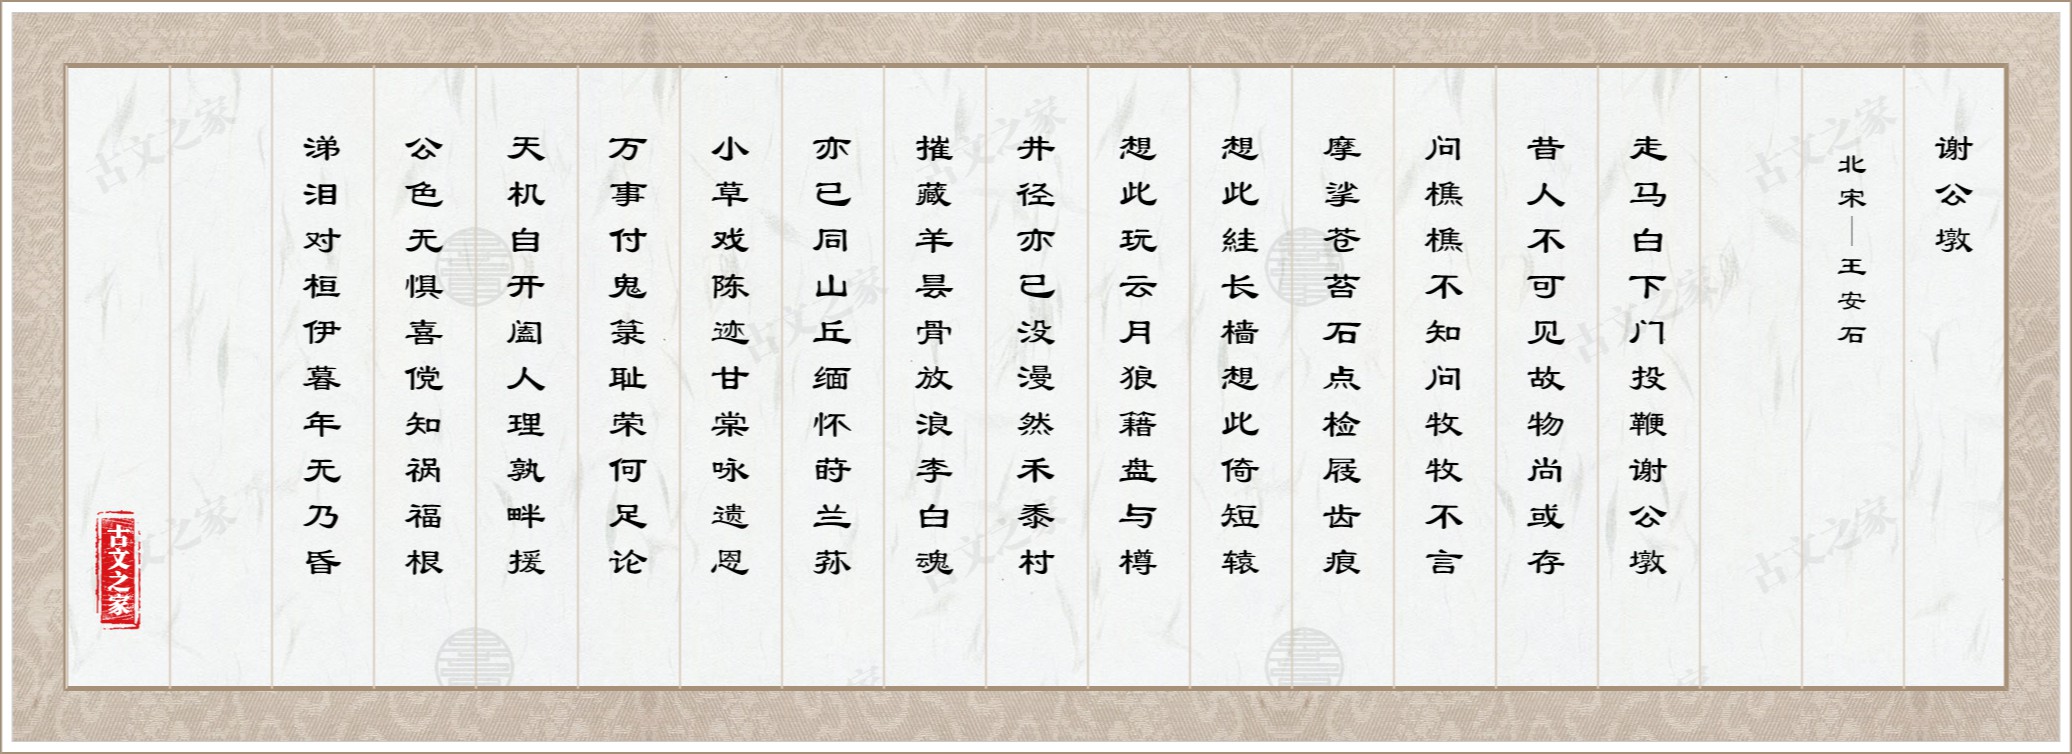 谢公墩
北宋—王安石
走马白下门投鞭谢公墩
昔人不可见故物尚或存
问樵樵不知问牧牧不言
摩挲苍苔石点检屐齿痕
想此絓长樯想此倚短辕
想此玩云月狼籍盘与樽
井径亦已没漫然禾黍村
摧藏羊昙骨放浪李白魂
亦已同山丘缅怀莳兰荪
小草戏陈迹甘棠咏遗恩
万事付鬼箓耻荣何足论
天机自开阖人理孰畔援
公色无惧喜傥知祸福根
涕泪对桓伊暮年无乃昏
古文之家